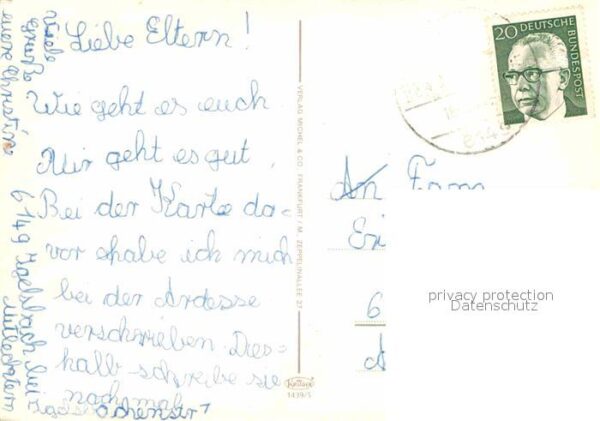 Liebe Eltern!
Wie geht es euch
Mir geht es gut
Bei der Karte da-
vor habe ich mich
bei der Ardesse
verschrieben. Dies-
halb schreibe sie
nochmal
Viele
Grüße
eure Christine
6149
VERLAG MICHEL & CO., FRANKFURT / M., ZEPPELINALLEE 27
1439/5
20 DEUTSCHE
BUNDESPOST
An Fam
6
privacy protection
Datenschutz